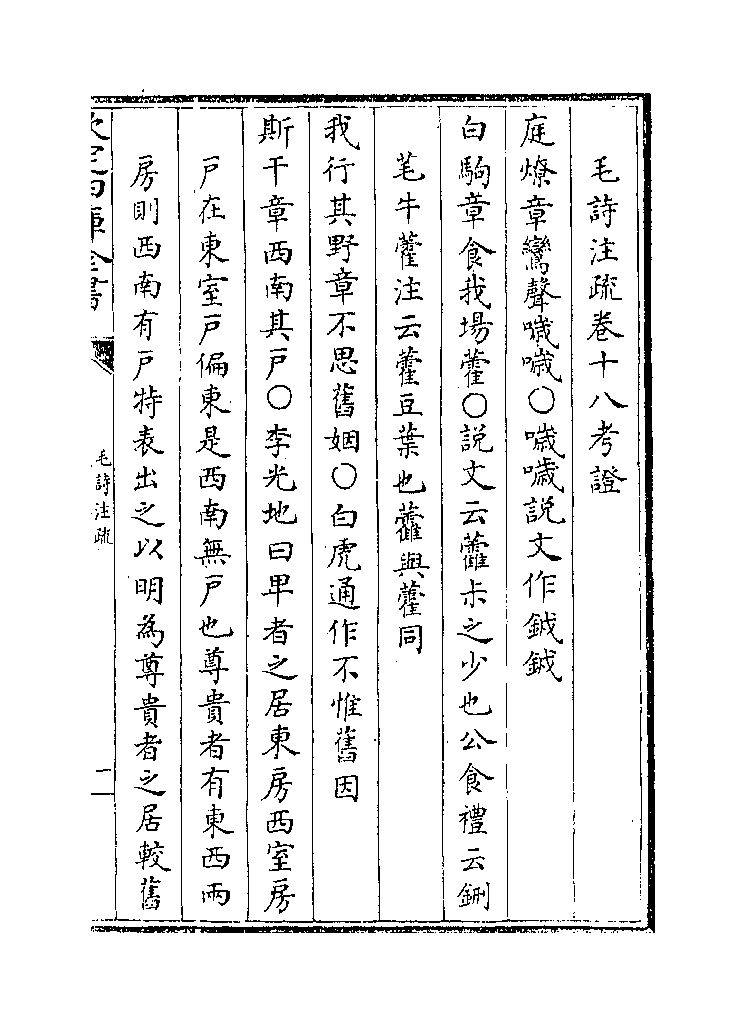 毛詩注疏卷十八考證
庭燎章鸞聲噦噦○噦噦説文作鉞鉞
白駒章食我場藿○説文云藿尗之少也公食禮云鉶
芼牛藿注云藿豆葉也虇與藿同
我行其野章不思舊姻○白虎通作不惟舊因
斯干章西南其戸○李光地曰卑者之居東房西室房
戸在東室戸偏東是西南無戸也尊貴者有東西兩
房則西南有戸特表出之以明為尊貴者之居較舊
欽定四庫全書
毛詩注疏
二